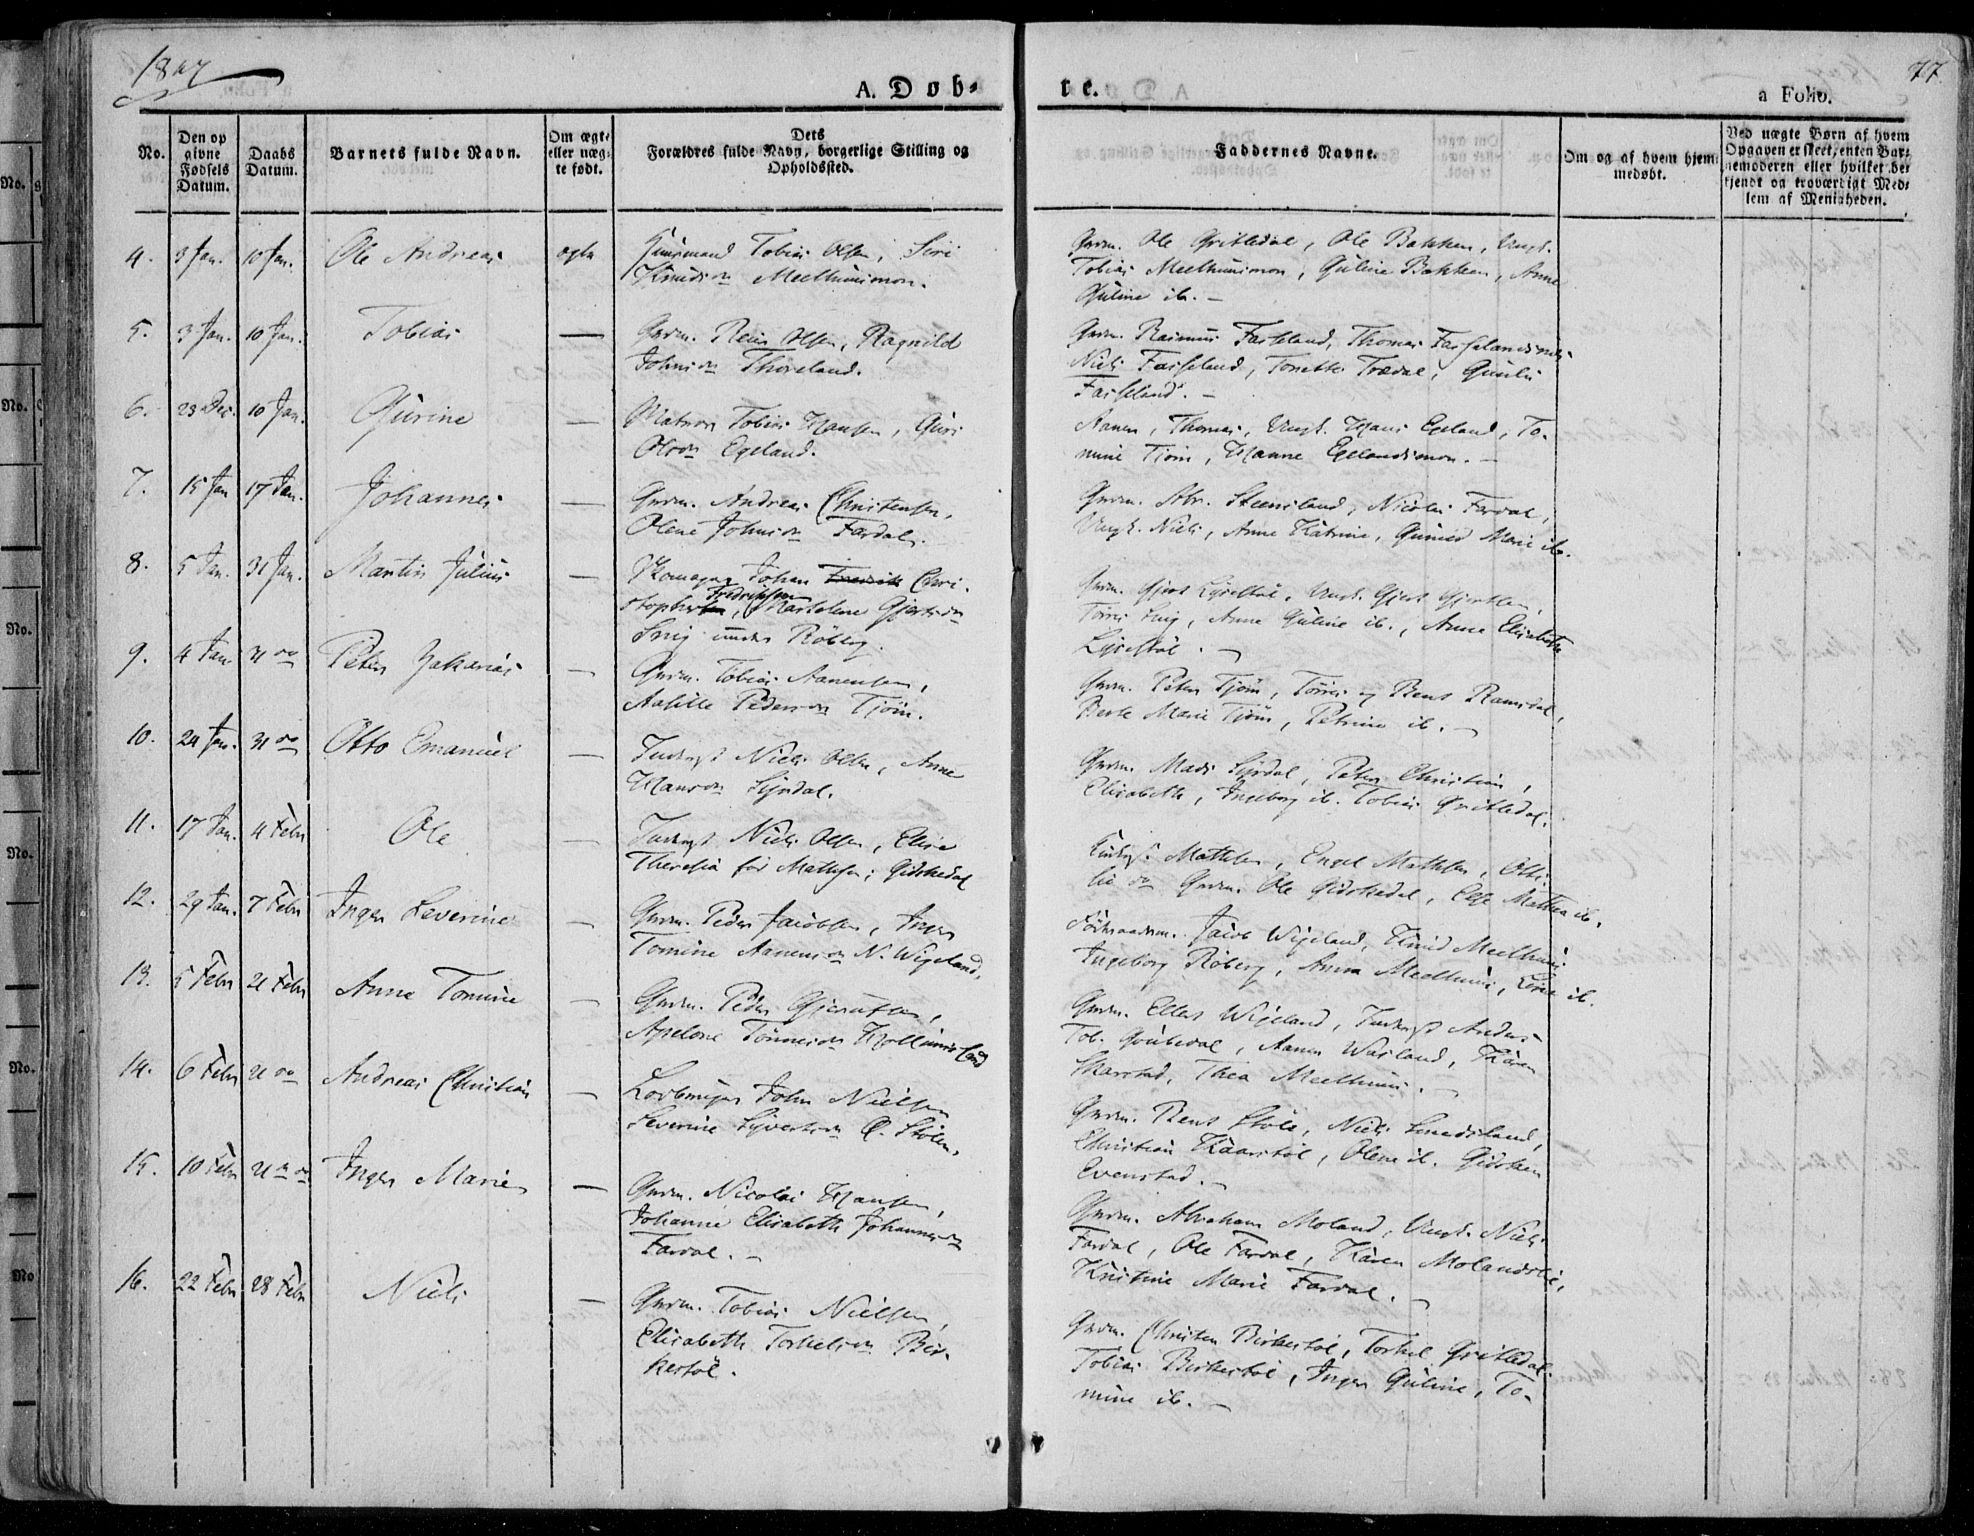 1847
77.
A. Døb-
te.
a Folio.
No.
Den op
givne
Fødsels
Datum.
Daabs
Datum.
Barnets fulde Navn.
Om ægte
eller uæg-
te født.
Dets
Forældres fulde Navn, borgerlige Stilling og
Opholdssted.
Faddernes Navne.
Om og af hvem hjem-
medøbt.
Ved uægte Børn af hvem
Opgaven er skeet, enten Bar-
nemoderen eller hvilket be-
kjendt og troværdigt Med-
lem af Menigheden.
4. 3 Jan. 10 Jan. Ole Andreas ægte Huusmand Tobias Olsen, Siri
Knudsdn Meelhuusmoen.
Grdm. Ole Qvitledal, Ole Bakken, Ungk.
Tobias Meelhuusmoen, Guline Bakken, Anne
Guline ib. -
5. 3 Jan. 10 Jan. Tobias — Grdm. Reier Olsen, Ragnild
Johnsdn Thoreland.
Grdm. Rasmus Fasseland, Thomas
Niels Fasseland, Tonette Trædal, Gunild
Fasseland. -
6. 23 Dec. 10 Jan. Gurine — Matros Tobias Hansen, Guri
Olsdn Egeland.
Aanen, Thomas, Ungk. Hans Egeland, To-
mine Tjøm, Hanne Egelandsmoen. -
7. 15 Jan 17 Jan. Johannes — Grdm. Andreas Christensen,
Olene Johnsdn Fardal.
Grdm. Abr. Steensland, Nicolai Fardal,
Ungk. Niels, Anne Katrine, Gunild Marie ib.
8. 5 Jan. 31 Jan. Martin Julius — Skomager Johan Fredrik Chri-
stophersen, Fredriksen Martelene Gjertsdn
Snig under Røberg.
Grdm. Gjert Lyrestøl, Ungk. Gjert Gjertsen,
Tørres Snig, Anne Guline ib., Anne Elisabeth
Lyrestøl. -
9. 4 Jan. 31 do Peter Zakarias — Grdm. Tobias Aanensen,
Aasille Pedersdn Tjøm.
Grdm. Peter Tjøm, Tørres og Reus Ramsdal,
Berte Marie Tjøm, Petrine ib. -
10. 24 Jan. 31 do Otto Emanuel — Inderst Niels Olsen, Anne
Hansdn Lyrdal.
Grdm. Mads Lyrdal, Peter Christian,
Elisabeth, Ingeborg ib. Tobias Qvitledal.
11. 17 Jan. 4 Febr Ole — Inderst Niels Olsen, Elise
Theresia før Mathsen, Gidskedal
Mathsen, Engel Mathsen, Otti-
lie do Grdm. Ole Gidskedal, Else Mathea ib.
12. 29 Jan. 7 Febr Inger Severine — Grdm. Peder Jacobsen, Inger
Tomine Aanensdn N. Wigeland,
Føderaadsm. Jacob Wigeland, Knud Meelhuus.
Ingeborg Røberg, Anna Meelhuus, Lene ib.
13. 5 Febr 21 Febr Anne Tomine — Grdm. Peder Gjerulfsen,
Apelone Tønnesdn Hollumsland
Grdm. Ellert Wigeland, Inderst Anders
Tob. Goubedal, Aanen Wasland, Karen
Skarstad, Thea Meelhuus. -
14. 6 Febr 21 do Andreas Christian — Lodbruger John Nielsen
Severine Syvertsdn Q. Stølen,
Grdm. Reus Støle, Niels Smedsland,
Christian Kaarstøl, Olene ib. Gidsken
Evenstad. -
15. 10 Febr 21 do Inger Marie — Grdm. Nicolai Hansen,
Johanne Elisabeth Johannesdn
Fardal. -
Grdm. Abraham Moland, Ungk. Niels
Fardal, Ole Fardal, Karen Molandslie,
Kristine Marie Fardal. -
16. 22 Febr 28 Febr Niels — Grdm. Tobias Nielsen,
Elisabeth Torkelsdn Bir-
kestøl.
Grdm. Christen Birkestøl, Torkel Qvitledal
Tobias Birkestøl, Inger Guline, To-
mine ib. -